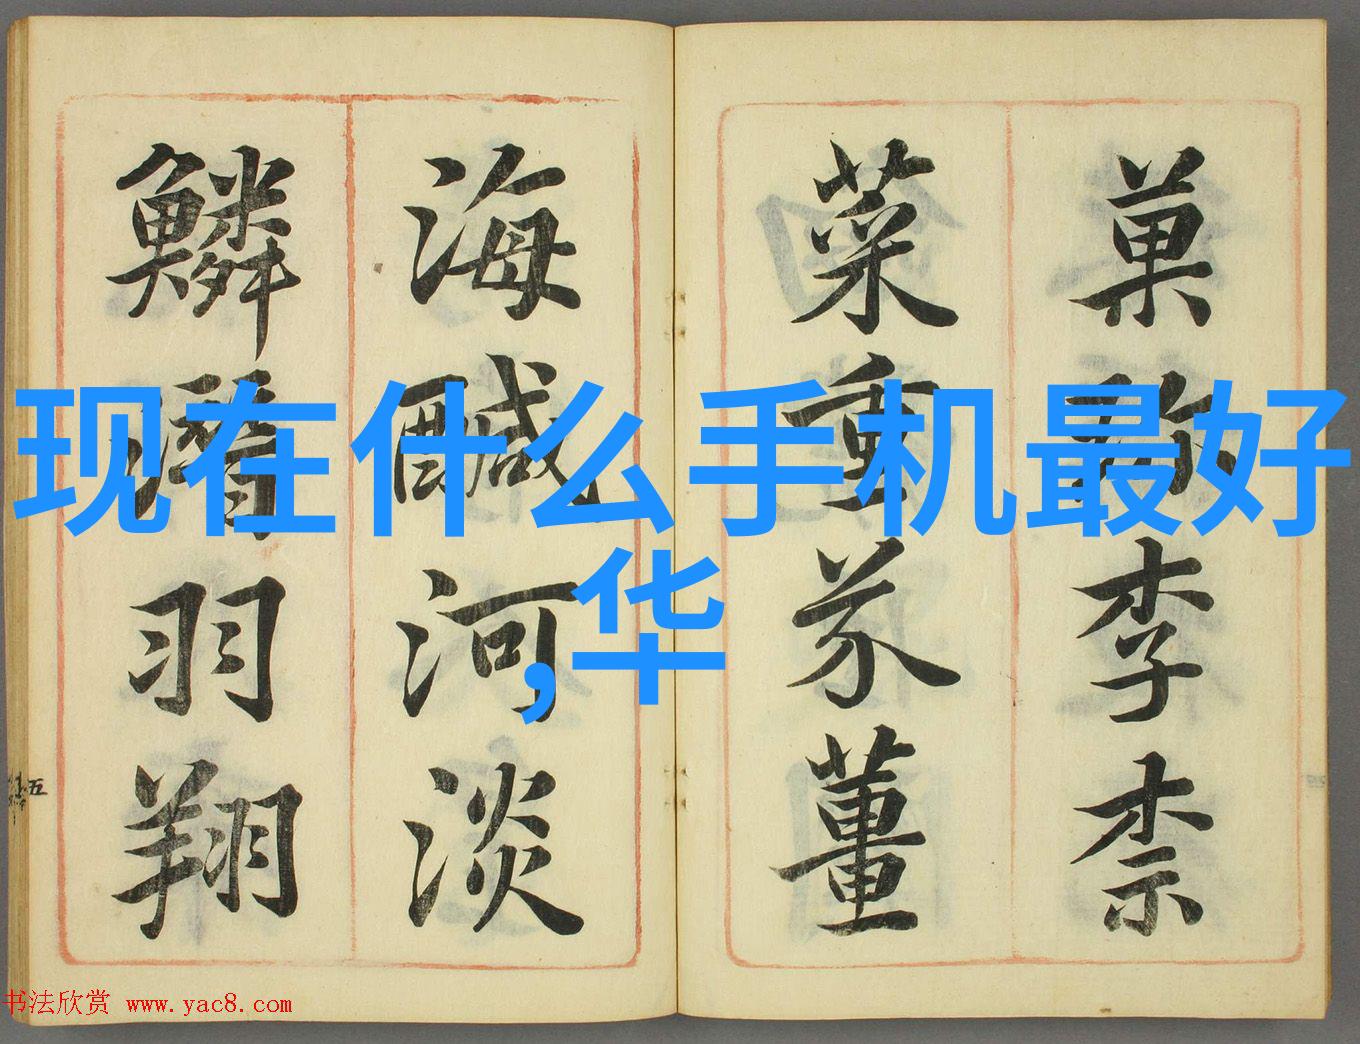 菓珎李柰
菜重芥薑
海鹹河淡
鱗潛羽翔
五
现在什么手机最好
,华
书法欣赏 www.yac8.com